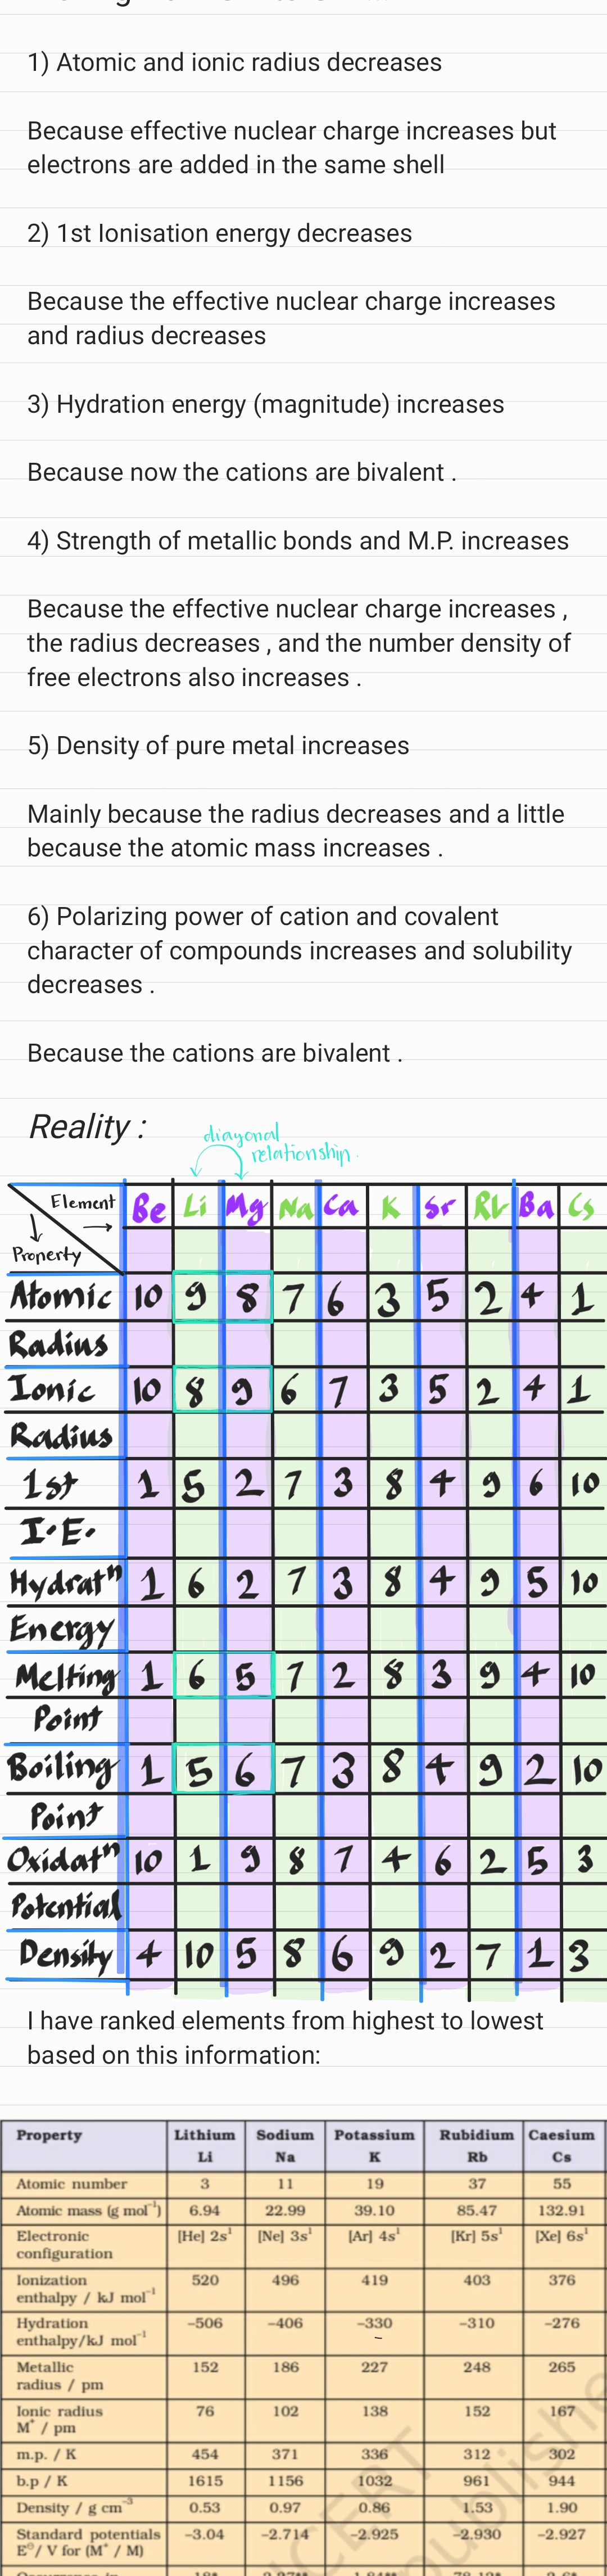 1) Atomic and ionic radius decreases
Because effective nuclear charge increases but
electrons are added in the same shell
2) 1st Ionisation energy decreases
Because the effective nuclear charge increases
and radius decreases
3) Hydration energy (magnitude) increases
Because now the cations are bivalent .
4) Strength of metallic bonds and M.P. increases
Because the effective nuclear charge increases ,
the radius decreases , and the number density of
free electrons also increases .
5) Density of pure metal increases
Mainly because the radius decreases and a little
because the atomic mass increases .
6) Polarizing power of cation and covalent
character of compounds increases and solubility
decreases .
Because the cations are bivalent .
Reality :
diagonal
relationship.
Element → Property ↓ Be Li Mg Na Ca K Sr Rb Ba Cs
Atomic Radius 10 9 8 7 6 3 5 2 4 1
Ionic Radius 10 8 9 6 7 3 5 2 4 1
1st I.E. 1 5 2 7 3 8 4 9 6 10
Hydratⁿ Energy 1 6 2 7 3 8 4 9 5 10
Melting Point 1 6 5 7 2 8 3 9 4 10
Boiling Point 1 5 6 7 3 8 4 9 2 10
Oxidatⁿ Potential 10 1 9 8 7 4 6 2 5 3
Density 4 10 5 8 6 9 2 7 1 3
I have ranked elements from highest to lowest
based on this information:
Property Lithium Li Sodium Na Potassium K Rubidium Rb Caesium Cs
Atomic number 3 11 19 37 55
Atomic mass (g mol⁻¹) 6.94 22.99 39.10 85.47 132.91
Electronic configuration [He] 2s¹ [Ne] 3s¹ [Ar] 4s¹ [Kr] 5s¹ [Xe] 6s¹
Ionization enthalpy / kJ mol⁻¹ 520 496 419 403 376
Hydration enthalpy/kJ mol⁻¹ –506 –406 –330 –310 –276
Metallic radius / pm 152 186 227 248 265
Ionic radius M⁺ / pm 76 102 138 152 167
m.p. / K 454 371 336 312 302
b.p / K 1615 1156 1032 961 944
Density / g cm⁻³ 0.53 0.97 0.86 1.53 1.90
Standard potentials E⊖/ V for (M⁺ / M) –3.04 –2.714 –2.925 –2.930 –2.927